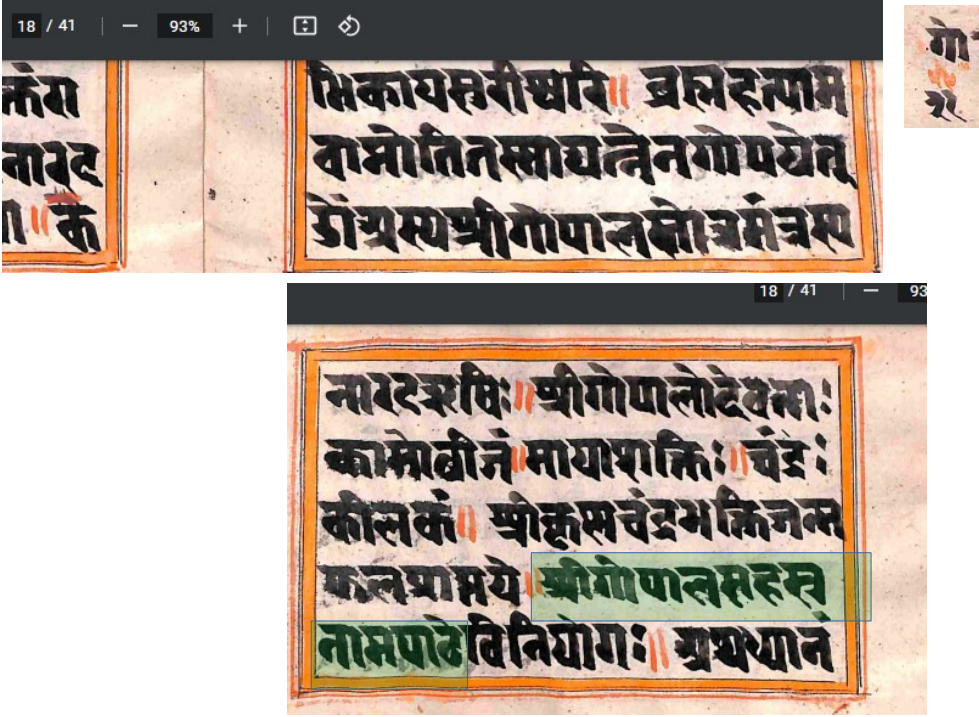 18 / 41 93%
भिकायसुरीश्वरि॥ ब्रह्महत्याम
वाप्नोतितस्माद्यत्नेनगोपयेत्
डोंअस्यश्रीगोपालस्तोत्रमंत्रस्य
नारद
॥ के
गो
18 / 41 93
नारदऋषिः॥श्रीगोपालोदेवताः
कामोबीजं॥मायाशक्तिः॥चंद्रः
कीलकं॥ श्रीकृष्णचंद्रभक्तिजन्म
फलप्राप्तये॥श्रीगोपालसहस्त्र
नामपाठेविनियोगः॥ अथध्यानं